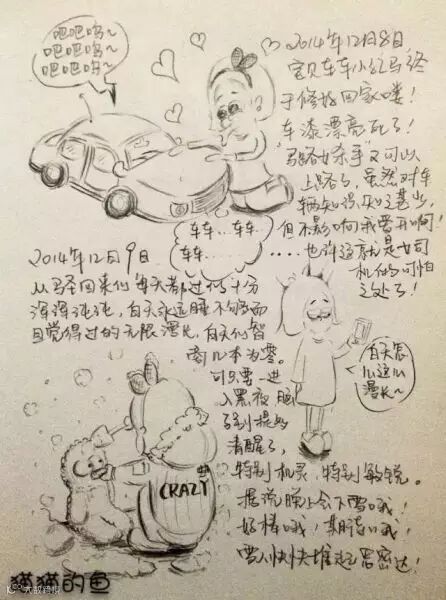 吧吧呜~
吧吧呜~
吧吧呜~
2014年12月8日,
宝贝车车小红马终
于修好回家喽!
车漆漂亮死了!
"马路女杀手"又可以
上路了,虽然对车
辆知识知之甚少,
但不影响我要开啊!
....也许这就是女司
机们的可怕
之处了!
车车...车车..
车车......
2014年12月9日
从马圣回来们每天都过的十分
浑浑沌沌,白天永远睡不够而
且觉得过的无限漫长,白天们智
商几本为零。
可只要一进
入黑夜脑
袋特别
清醒了,
特别机灵,特别敏锐。
据说晚上会下雪哦!
好棒哦,期待哦!
雪人快快堆起思密达!
白天怎
么这么
漫长~
CRAZY
猫猫的鱼